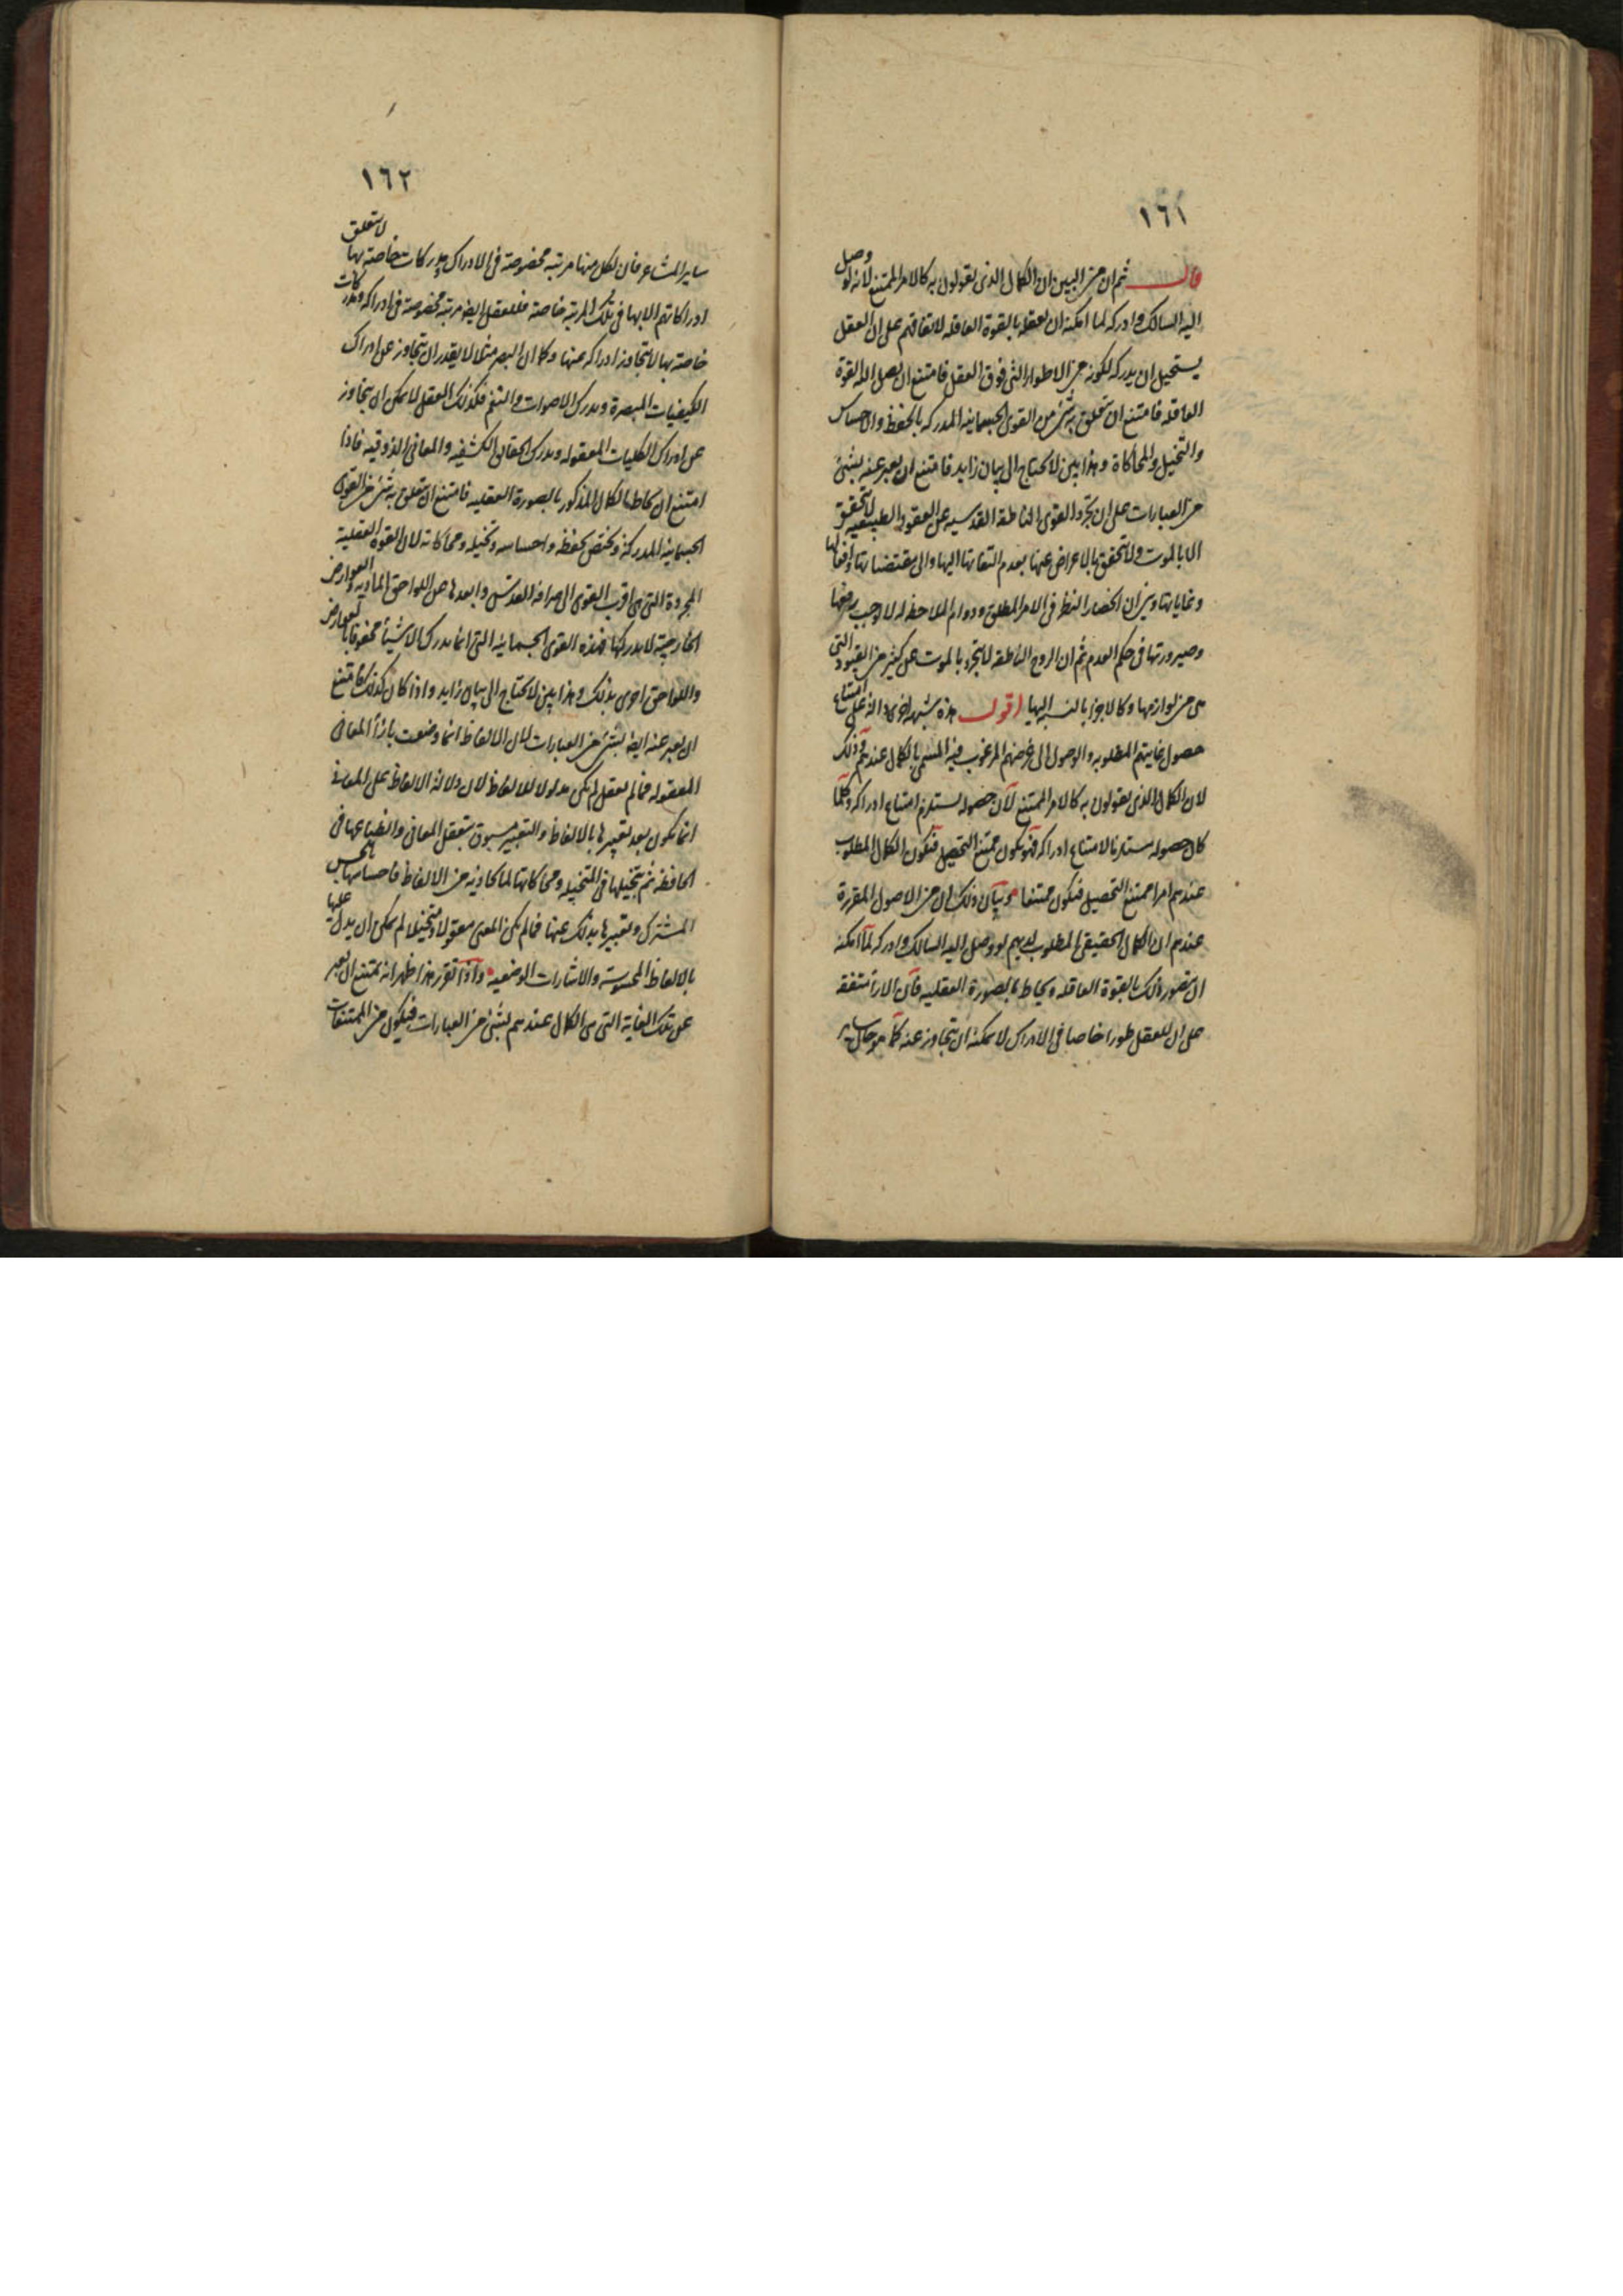 ١٦١
قال ثم ان من البين ان الكمال الذى يقولون به كالامر الممتنع لانه لو وصل
اليه السالك وادركه لما امكنه ان يعقله بالقوة العاقلة لاتفاقهم على ان العقل
يستحيل ان يدركه لكونه من الاطوار التى فوق العقل فامتنع ان يصل اليه القوة
العاقله فامتنع ان يتعلق به شئ من القوى الجسمانيه المدركه بالحفظ والاحساس
والتخيل والمحاكاة وهذا بين لا يحتاج الى بيان زايد فامتنع ان يعبر عنه بشئ
من العبارات على ان تجرد القوى الناطقة القدسيه عن العقود الطبيعيه لا يتحقق
الا بالموت ولا يتحقق بالاعراض عنها بعدم التفاتها اليها والى مقتضياتها وافعالها
وغاياتها وبين ان انحصار النظر فى الامر المطلق ودوام الملاحظه له لا يوجب رفعها
وصيرورتها فى حكم العدم ثم ان الروح الناطقه لا يتجرد بالموت عن كثير من القيود التى
هى من لوازمها وكالاجزا بالنسبه اليها اقول هذه شبهة اخرى دالة على امتناع
حصول غايتهم المطلوبه والوصول الى غرضهم المرغوب فيه المسمى بالكمال عندهم وذلك
لان الكمال الذى يقولون به كالامر الممتنع لان حصوله يستلزم امتناع ادراكه وكلما
كان حصوله مستلزما لامتناع ادراكه فهو يكون ممتنع التحصيل فيكون الكمال المطلوب
عندهم امرا ممتنع التحصيل فيكون ممتنعا وبيان ذلك ان من الاصول المقررة
عندهم ان الكمال الحقيقى المطلوب لديهم لو وصل اليه السالك وادركه لما امكنه
ان يتصور ذلك بالقوة العاقله ويحاط بالصورة العقليه فان الارا متفقة
على ان للعقل طورا خاصا فى الادراك لا يمكنه ان يتجاوز عنه كما هو حال ساير
١٦٢
ساير المشاعر فان لكل منها مرتبه مخصوصة فى الادراك ومدركات خاصة بها لا يتعلق
ادراكاتهم الا بها فى تلك المرتبة خاصة فللعقل ايضا مرتبة مخصوصة فى ادراكه ومدركات
خاصة بها لا يتجاوز ادراكه عنها وكما ان البصر مثلا لا يقدر ان يتجاوز عن ادراك
الكيفيات المبصرة ويدرك الاصوات والنغم فكذلك العقل لا يمكن ان يتجاوز
عن ادراك الكليات المعقوله ويدرك الحقايق الكشفيه والمعانى الذوقيه فاذا
امتنع ان يحاط الكمال المذكور بالصورة العقليه فامتنع ان يتعلق به شئ من القوى
الجسمانيه المدركة ويختص بحفظه واحساسه وتخيله ومحاكاته لان القوة العقلية
المجردة التى هى اقرب القوى الى صرافة القدس وابعدها عن اللواحق الماديه والعوارض
الخارجية لا يدركها فهذه القوى الجسمانيه التى انما يدرك الاشيا محفوفا بالعوارض
واللواحق احرى بذلك وهذا بين لا يحتاج الى بيان زايد واذا كان كذلك فامتنع
ان يعبر عنه ايضا بشئ من العبارات لان الالفاظ انما وضعت بازاء المعانى
المعقوله فما لم يعقل لم يكن مدلولا للالفاظ لان دلالة الالفاظ على المعانى
انما يكون بعد تعبيرها بالالفاظ والتعبير مسبوق بتعقل المعانى وانطباعها فى
الحافظة ثم تخيلها فى المتخيله ومحاكاتها لما يحاذيه من الالفاظ فاحساسها بالحس
المشترك وتعبيرها بذلك عنها فما لم يكن المعنى معقولا ومتخيلا لم يمكن ان يدل عليها
بالالفاظ المحسوسة والاشارات الوضعيه واذا تقرر هذا ظهر انه يمتنع ان يعبر
عن تلك الغاية التى هى الكمال عندهم بشئ من العبارات فيكون من الممتنعات